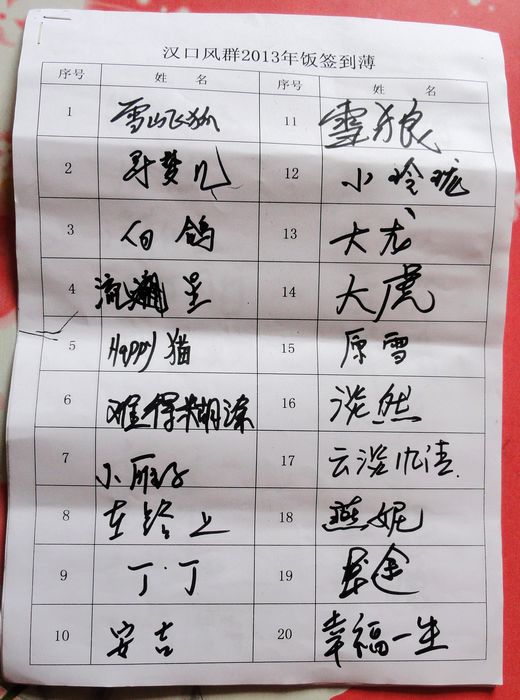 汉口风群2013年饭签到薄
序号 姓 名 序号 姓 名
1 雪山飞狐 11 雪狼
2 寻梦儿 12 小玲珑
3 白鸽 13 大龙
4 流 星 14 大虎
5 Happy猫 15 原雪
6 难得糊涂 16 淡然
7 小雁子 17 云淡风清
8 在路上 18 燕妮
9 丁丁 19 途
10 安吉 20 幸福一生